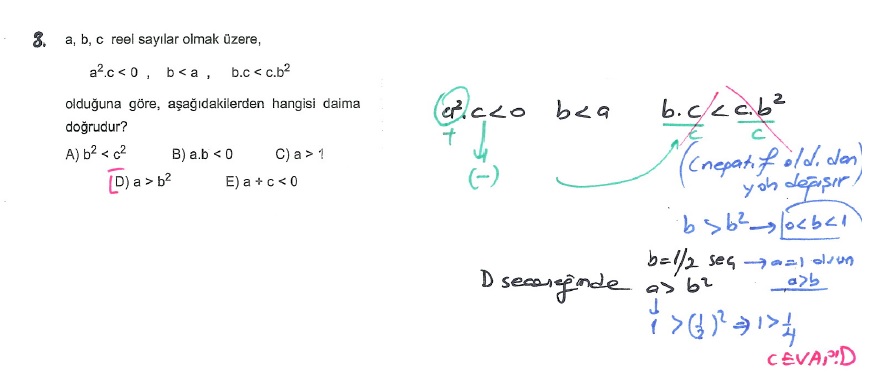 8. a, b, c reel sayılar olmak üzere,
a².c < 0 , b < a , b.c < c.b²
olduğuna göre, aşağıdakilerden hangisi daima
doğrudur?
A) b² < c² B) a.b < 0 C) a > 1
D) a > b² E) a + c < 0
a².c<0 b<a b.c < c.b²
+ c c
(-)
(negatif old. dan
yön değişir)
b > b² → 0<b<1
b=1/2 seç → a=1 olsun
D seceneğinde a > b² a>b
1 > (1/2)² ⇒ 1 > 1/4
CEVAP:D